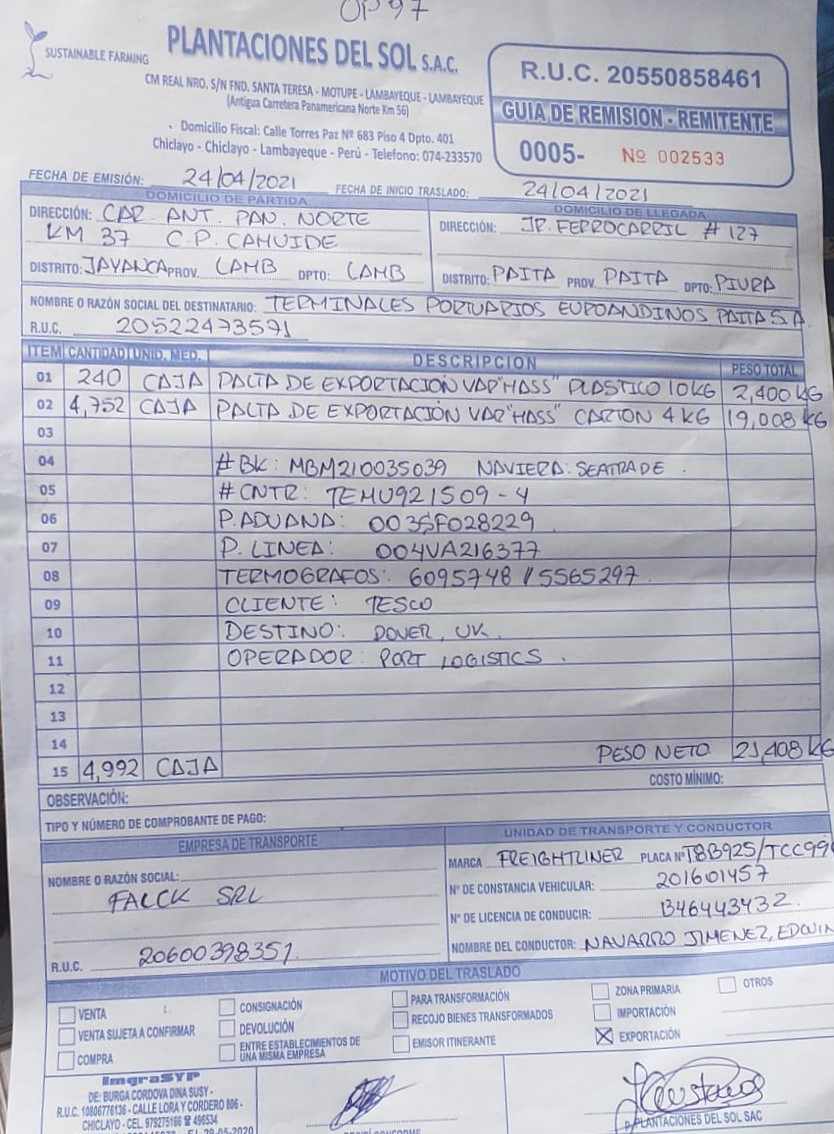 OP 97
SUSTAINABLE FARMING
PLANTACIONES DEL SOL S.A.C.
CM REAL NRO. S/N FND. SANTA TERESA - MOTUPE - LAMBAYEQUE - LAMBAYEQUE
(Antigua Carretera Panamericana Norte Km 56)
• Domicilio Fiscal: Calle Torres Paz Nº 683 Piso 4 Dpto. 401
Chiclayo - Chiclayo - Lambayeque - Perú - Telefono: 074-233570
R.U.C. 20550858461
GUIA DE REMISION - REMITENTE
0005- Nº 002533
FECHA DE EMISIÓN: 24/04/2021 FECHA DE INICIO TRASLADO: 24/04/2021
DOMICILIO DE PARTIDA
DIRECCIÓN: CAR ANT. PAN. NORTE
KM 37 C.P. CAHUIDE
DISTRITO: JAYANCA PROV. LAMB DPTO: LAMB
DOMICILIO DE LLEGADA
DIRECCIÓN: JR. FERROCARRIL # 127
DISTRITO: PAITA PROV. PAITA DPTO: PIURA
NOMBRE O RAZÓN SOCIAL DEL DESTINATARIO: TERMINALES PORTUARIOS EUROANDINOS PAITA S.A
R.U.C. 20522473571
ITEM CANTIDAD UNID. MED. DESCRIPCION PESO TOTAL
01 240 CAJA PALTA DE EXPORTACIÓN VAR "HASS" PLASTICO 10KG 2,400 KG
02 4,752 CAJA PALTA DE EXPORTACIÓN VAR "HASS" CARTON 4 KG 19,008 KG
03
04 # BK: MBM210035039 NAVIERA: SEATRADE.
05 # CNTR: TEMU921509-4
06 P. ADUANA: 003SF028229
07 P. LINEA: 004VA216377
08 TERMOGRAFOS: 6095748 / 5565297.
09 CLIENTE: TESCO
10 DESTINO: DOVER, UK.
11 OPERADOR: PORT LOGISTICS.
12
13
14
15 4,992 CAJA PESO NETO 21,408 KG
COSTO MÍNIMO:
OBSERVACIÓN:
TIPO Y NÚMERO DE COMPROBANTE DE PAGO:
EMPRESA DE TRANSPORTE
NOMBRE O RAZÓN SOCIAL:
FALCK SRL
R.U.C. 20600398351.
UNIDAD DE TRANSPORTE Y CONDUCTOR
MARCA FREIGHTLINER PLACA Nº T8B925/TCC99
Nº DE CONSTANCIA VEHICULAR: 201601457
Nº DE LICENCIA DE CONDUCIR: B46443432.
NOMBRE DEL CONDUCTOR: NAVARRO JIMENEZ, EDWIN
MOTIVO DEL TRASLADO
VENTA CONSIGNACIÓN PARA TRANSFORMACIÓN ZONA PRIMARIA OTROS
VENTA SUJETA A CONFIRMAR DEVOLUCIÓN RECOJO BIENES TRANSFORMADOS IMPORTACIÓN
COMPRA ENTRE ESTABLECIMIENTOS DE EMISOR ITINERANTE EXPORTACIÓN
UNA MISMA EMPRESA
ImgraSYP
DE: BURGA CORDOVA DINA SUSY -
R.U.C. 10806776136 - CALLE LORA Y CORDERO 806 -
CHICLAYO - CEL. 979275166 ☎ 496534
28-05-2020
P. PLANTACIONES DEL SOL SAC